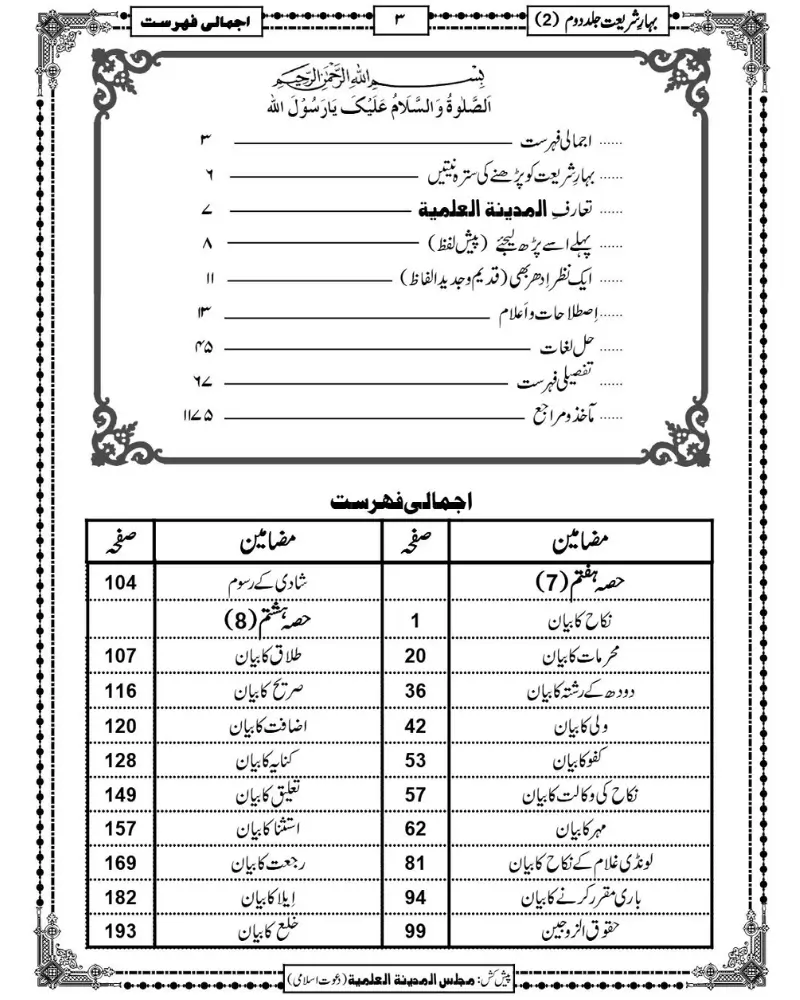 بہارِ شریعت جلد دوم (2)
۳
اجمالی فہرست
بِسْمِ اللہِ الرَّحْمٰنِ الرَّحِیْمِ
اَلصَّلٰوۃُ وَالسَّلَامُ عَلَیْکَ یَارَسُوْلَ اللہ
...... اجمالی فہرست ۳
...... بہارِ شریعت کو پڑھنے کی سترہ نیتیں ۶
...... تعارفِ المدینۃ العلمیۃ ۷
...... پہلے اسے پڑھ لیجئے (پیش لفظ) ۸
...... ایک نظر اِدھر بھی (قدیم و جدید الفاظ) ۱۱
...... اِصطلاحات و اَعلام ۱۳
...... حل لغات ۴۵
...... تفصیلی فہرست ۶۷
...... مآخذ و مراجع ۱۱۷۵
اجمالی فہرست
مضامین صفحہ مضامین صفحہ
حصہ ہفتم (7) شادی کے رسوم 104
نکاح کا بیان 1 حصہ ہشتم (8)
محرمات کا بیان 20 طلاق کا بیان 107
دودھ کے رشتہ کا بیان 36 صریح کا بیان 116
ولی کا بیان 42 اضافت کا بیان 120
کفو کا بیان 53 کنایہ کا بیان 128
نکاح کی وکالت کا بیان 57 تعلیق کا بیان 149
مہر کا بیان 62 استثنا کا بیان 157
لونڈی غلام کے نکاح کا بیان 81 رجعت کا بیان 169
باری مقرر کرنے کا بیان 94 اِیلا کا بیان 182
حقوق الزوجین 99 خلع کا بیان 193
پیش کش: مجلس المدینۃ العلمیۃ (دعوت اسلامی)